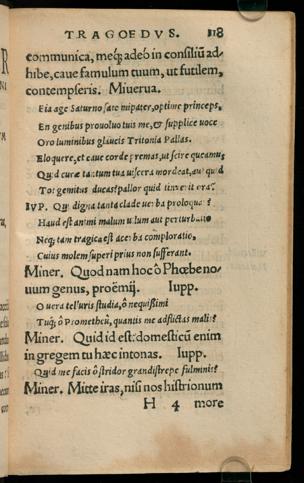 TRAGOEDVS. 118
communica, meq́; adeò in consiliũ ad-
hibe, caue famulum tuum, ut futilem,
contempseris. Miuerua.
Eia age Saturno sate mi pater, optime princeps,
En genibus prouoluo tuis me, & supplice uoce
Oro luminibus glaucis Tritonia Pallas.
Eloquere, et caue corde premas, ut scire queamus,
Quid curæ tantum tua uiscera mordeat, aut quid
Tot gemitus ducas? pallor quid inuenit ora?
IVP. Quę digna tanta clade uerba proloquar?
Haud est animi malum ullum aut perturbatio
Neq; tam tragica est acerba comploratio,
Cuius molem superi prius non sufferant.
Miner. Quod nam hoc ò Phœbe no-
uum genus, proëmij. Iupp.
O uera telluris studia, ô nequißimi
Tuq́; ô Prometheũ, quantis me adflictas malis?
Miner. Quid id est? domesticũ enim
in gregem tu hæc intonas. Iupp.
Quid me facis ô stridor grandistrepe fulminis?
Miner. Mitte iras, nisi nos histrionum
H 4 more